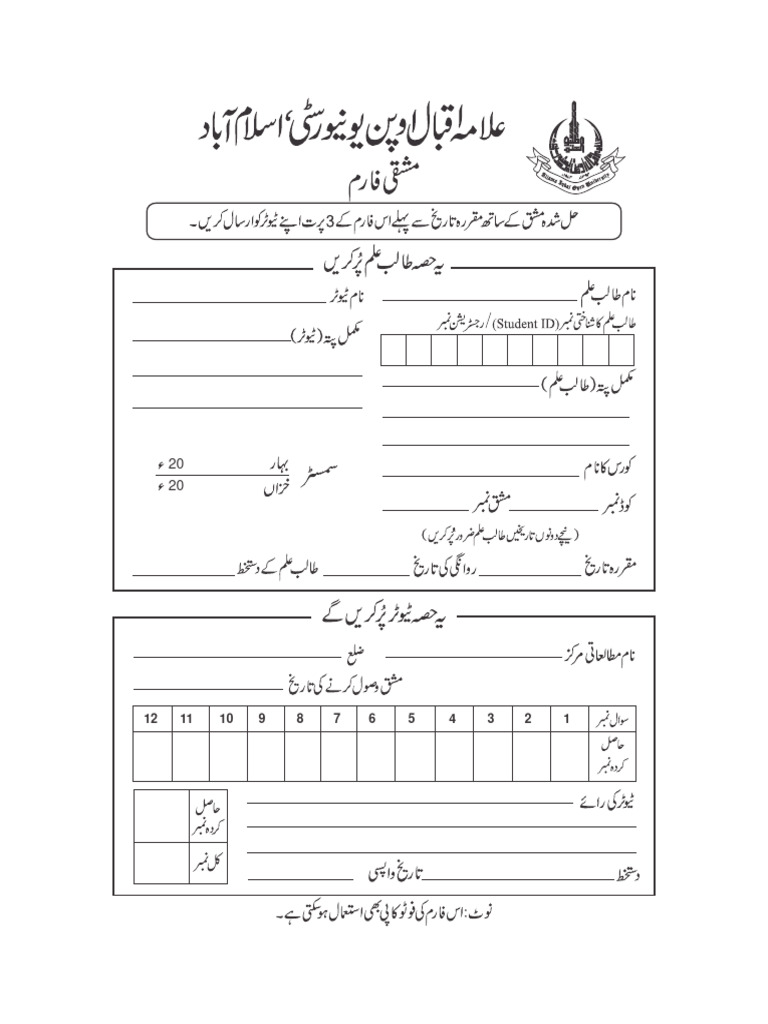 علامہ اقبال اوپن یونیورسٹی، اسلام آباد
Allama Iqbal Open University
مشقی فارم
حل شدہ مشق کے ساتھ مقررہ تاریخ سے پہلے اس فارم کے 3 پرت اپنے ٹیوٹر کو ارسال کریں۔
یہ حصہ طالب علم پُر کریں
نام طالب علم نام ٹیوٹر
طالب علم کا شناختی نمبر (Student ID)/رجسٹریشن نمبر مکمل پتہ (ٹیوٹر)
مکمل پتہ (طالب علم)
کورس کا نام سمسٹر بہار 20 ء
خزاں 20 ء
کوڈ نمبر مشق نمبر
(نیچے دونوں تاریخیں طالب علم ضرور پُر کریں)
مقررہ تاریخ روانگی کی تاریخ طالب علم کے دستخط
یہ حصہ ٹیوٹر پُر کریں گے
نام مطالعاتی مرکز ضلع
مشق وصول کرنے کی تاریخ
سوال نمبر 1 2 3 4 5 6 7 8 9 10 11 12
حاصل
کردہ نمبر
ٹیوٹر کی رائے
حاصل
کردہ نمبر
کل نمبر
دستخط تاریخ واپسی
نوٹ: اس فارم کی فوٹو کاپی بھی استعمال ہو سکتی ہے۔